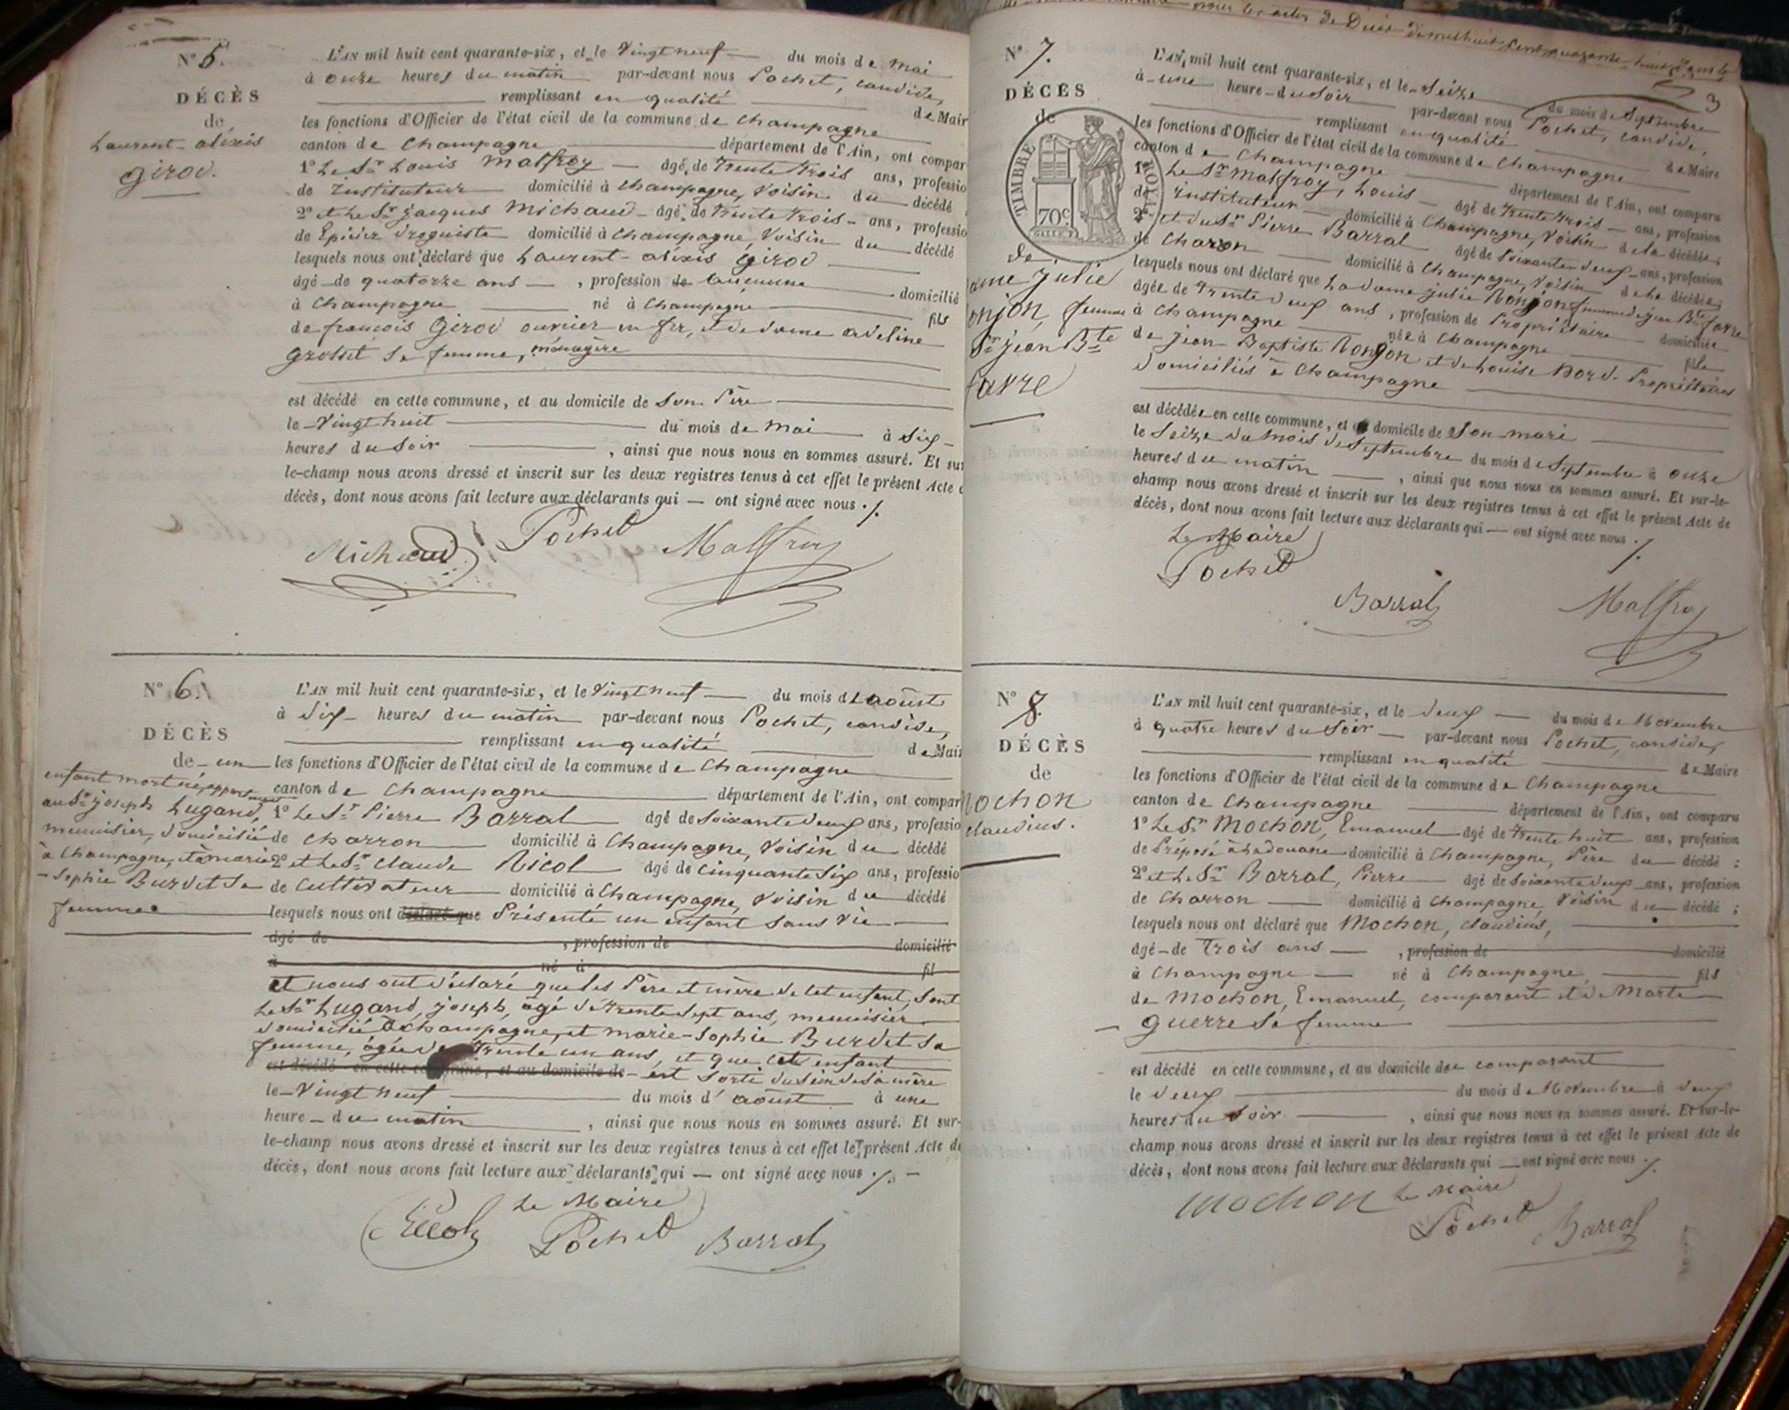 N° 5.
DÉCÈS
de
Laurent-alixis
girod.
L'AN mil huit cent quarante-six, et le Vingt neuf du mois de mai
à onze heures du matin par-devant nous Pochet, candide,
remplissant en qualité de Mair
les fonctions d'Officier de l'état civil de la commune de Champagne
canton de Champagne département de l'Ain, ont compar
1° Le Sr Louis Malfroy âgé de trente trois ans, professio
de Instituteur domicilié à Champagne, Voisin du décédé
2° et Le Sr jacques Michaud âgé de trente trois ans, professio
de Epicier droguiste domicilié à Champagne, Voisin du décédé
lesquels nous ont déclaré que Laurent-alixis girod
âgé de quatorze ans, profession de aucunne domicilié
à Champagne né à Champagne fils
de françois girod ouvrier en fer, et de dame adeline
sa femme, ménagère
est décédé en cette commune, et au domicile de son Père
le Vingt huit du mois de mai à six
heures du soir, ainsi que nous nous en sommes assuré. Et sur
le-champ nous avons dressé et inscrit sur les deux registres tenus à cet effet le présent Acte d
décès, dont nous avons fait lecture aux déclarants qui — ont signé avec nous ./.
Michaud Pochet Malfroy
N° 6.
DÉCÈS
de un
enfant mort né,
au Sr joseph Lugand,
menuisier, domicilié
à Champagne, et à marie
-Sophie Burdet sa
femme
L'AN mil huit cent quarante-six, et le Vingt neuf du mois d'aoust
à six heures du matin par-devant nous Pochet, candide,
remplissant en qualité de Mair
les fonctions d'Officier de l'état civil de la commune de Champagne
canton de Champagne département de l'Ain, ont compar
1° Le Sr Pierre Barral âgé de soixante deux ans, professio
de charron domicilié à Champagne, Voisin du décédé
2° et Le Sr Claude Nicol âgé de cinquante six ans, professio
de Cultivateur domicilié à Champagne, Voisin du décédé
lesquels nous ont déclaré que Présenté un enfant sans vie
âgé de , profession de domicilié
à né à fil
et nous ont déclaré que les Père et mère de cet enfant, sont
Le Sr Lugand, joseph, âgé de trente sept ans, menuisier
domicilié à champagne, et marie-sophie Burdet sa
femme, âgée de trente un ans, et que cet enfant
est décédé en cette commune, et au domicile de est sorti du sein de sa mère
le Vingt neuf du mois d'aoust à une
heure du matin, ainsi que nous nous en sommes assuré. Et sur-
le-champ nous avons dressé et inscrit sur les deux registres tenus à cet effet le présent Acte de
décès, dont nous avons fait lecture aux déclarants qui — ont signé avec nous ./. —
Le Maire
Pochet Barral
pour les actes de Décès de mil huit cent quarante
3
N° 7.
DÉCÈS
de
TIMBRE ROYAL
70c
de
ame julie
onjon, femme
Sr jean Bte
favre
L'AN mil huit cent quarante-six, et le Seize du mois de Septembre
à une heure du soir par-devant nous Pochet, candide,
remplissant en qualité de Maire
les fonctions d'Officier de l'état civil de la commune de Champagne
canton de Champagne département de l'Ain, ont comparu
1° Le Sr Malfroy, Louis âgé de trente trois ans, profession
de Instituteur domicilié à Champagne, Voisin de la décédée;
2° et du Sr Pierre Barral âgé de soixante deux ans, profession
de Charon domicilié à Champagne, Voisin de la décédée;
lesquels nous ont déclaré que La dame julie Nonjon femme de jean Bte favre
âgée de trente deux ans, profession de Propriétaire domiciliée
à Champagne née à Champagne fille
de jean Baptiste Nonjon et de Louise Propriétaires
domiciliés à Champagne
est décédée en cette commune, et au domicile de son mari
le Seize du mois de Septembre du mois de Septembre à onze
heures du matin, ainsi que nous nous en sommes assuré. Et sur-le-
champ nous avons dressé et inscrit sur les deux registres tenus à cet effet le présent Acte de
décès, dont nous avons fait lecture aux déclarants qui — ont signé avec nous ./.
Le Maire
Pochet
Barral Malfroy
N° 8.
DÉCÈS
de
Mochon
claudius.
L'AN mil huit cent quarante-six, et le deux du mois de Novembre
à quatre heures du soir par-devant nous Pochet, candide,
remplissant en qualité de Maire
les fonctions d'Officier de l'état civil de la commune de Champagne
canton de Champagne département de l'Ain, ont comparu
1° Le Sr Mochon, Emanuel âgé de trente huit ans, profession
de Préposé à la douane domicilié à Champagne, Père du décédé;
2° et Le Sr Barral, Pierre âgé de soixante deux ans, profession
de Charron domicilié à Champagne, Voisin du décédé;
lesquels nous ont déclaré que Mochon, claudius,
âgé de trois ans, profession de domicilié
à Champagne né à Champagne, fils
de Mochon, Emanuel, comparant et de Marte
guerre sa femme
est décédé en cette commune, et au domicile du comparant
le deux du mois de Novembre à deux
heures du soir, ainsi que nous nous en sommes assuré. Et sur-le-
champ nous avons dressé et inscrit sur les deux registres tenus à cet effet le présent Acte de
décès, dont nous avons fait lecture aux déclarants qui — ont signé avec nous ./.
Mochon Le Maire
Pochet Barral